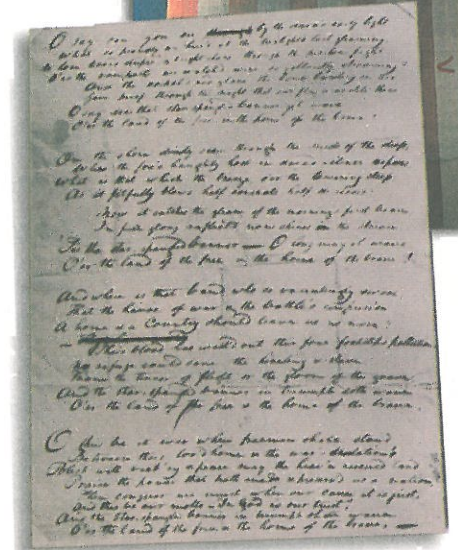 O say can you see by the dawn's early light
What so proudly we hail'd at the twilight's last gleaming,
Whose broad stripes & bright stars through the perilous fight
O'er the ramparts we watch'd, were so gallantly streaming?
And the rocket's red glare, the bomb bursting in air,
Gave proof through the night that our flag was still there
O say does that star-spangled banner yet wave
O'er the land of the free & the home of the brave?
On the shore dimly seen through the mists of the deep,
Where the foe's haughty host in dread silence reposes,
What is that which the breeze, o'er the towering steep,
As it fitfully blows, half conceals, half discloses?
Now it catches the gleam of the morning's first beam,
In full glory reflected now shines in the stream,
'Tis the star-spangled banner — O long may it wave
O'er the land of the free & the home of the brave!
And where is that band who so vauntingly swore,
That the havoc of war & the battle's confusion
A home & a Country should leave us no more?
Their blood has wash'd out their foul footsteps pollution
No refuge could save the hireling & slave
From the terror of flight or the gloom of the grave,
And the star-spangled banner in triumph doth wave
O'er the land of the free & the home of the brave.
O thus be it ever when freemen shall stand
Between their lov'd home & the war's desolation!
Blest with vict'ry & peace may the heav'n rescued land
Praise the power that hath made & preserv'd us a nation!
Then conquer we must, when our cause it is just,
And this be our motto — "In God is our trust,"
And the star-spangled banner in triumph shall wave
O'er the land of the free & the home of the brave. —